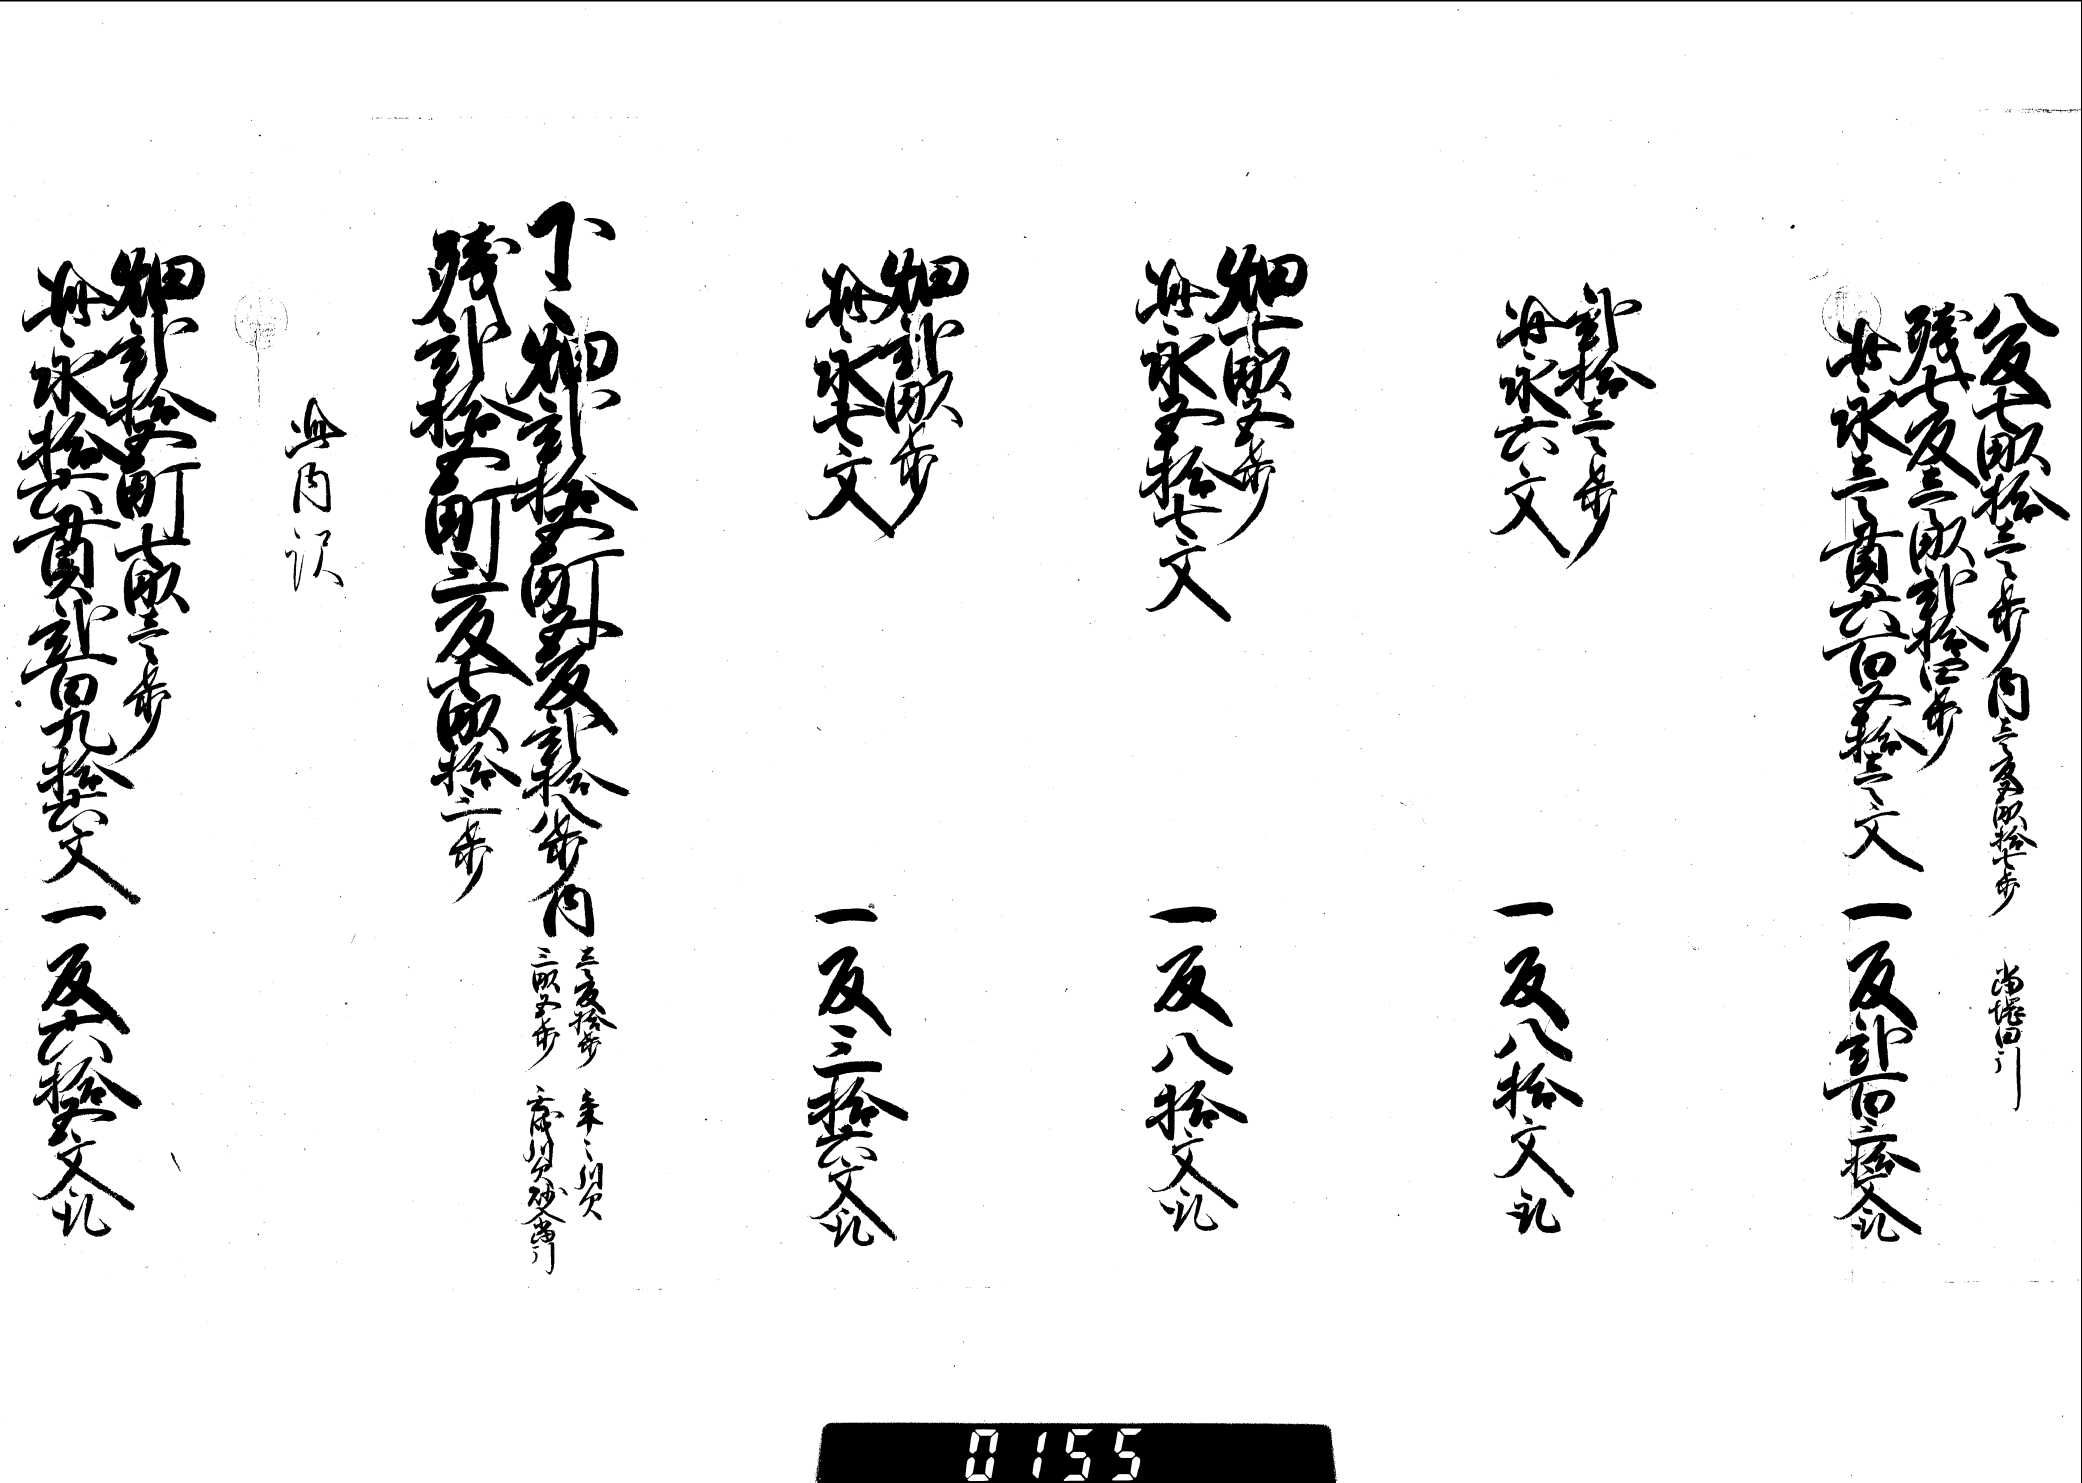 八反七畝拾壱歩内 壱反五畝拾七歩 当堰田引
残七反壱畝弐拾四歩
此永壱貫六百五拾壱文 一反弐百三拾文取
弐拾壱歩
此永六文 一反八拾文取
畑七畝五歩
此永五拾七文 一反八拾文取
畑弐畝歩
此永七文 一反三拾六文取
下々畑弐拾五町五反弐拾八歩内
壱反拾歩 年々川欠
三畝五歩 戌川欠砂入当引
残弐拾五町三反七畝拾三歩
此内訳
畑弐拾五町七畝壱歩
此永拾六貫弐百九拾六文 一反六拾五文取
0155